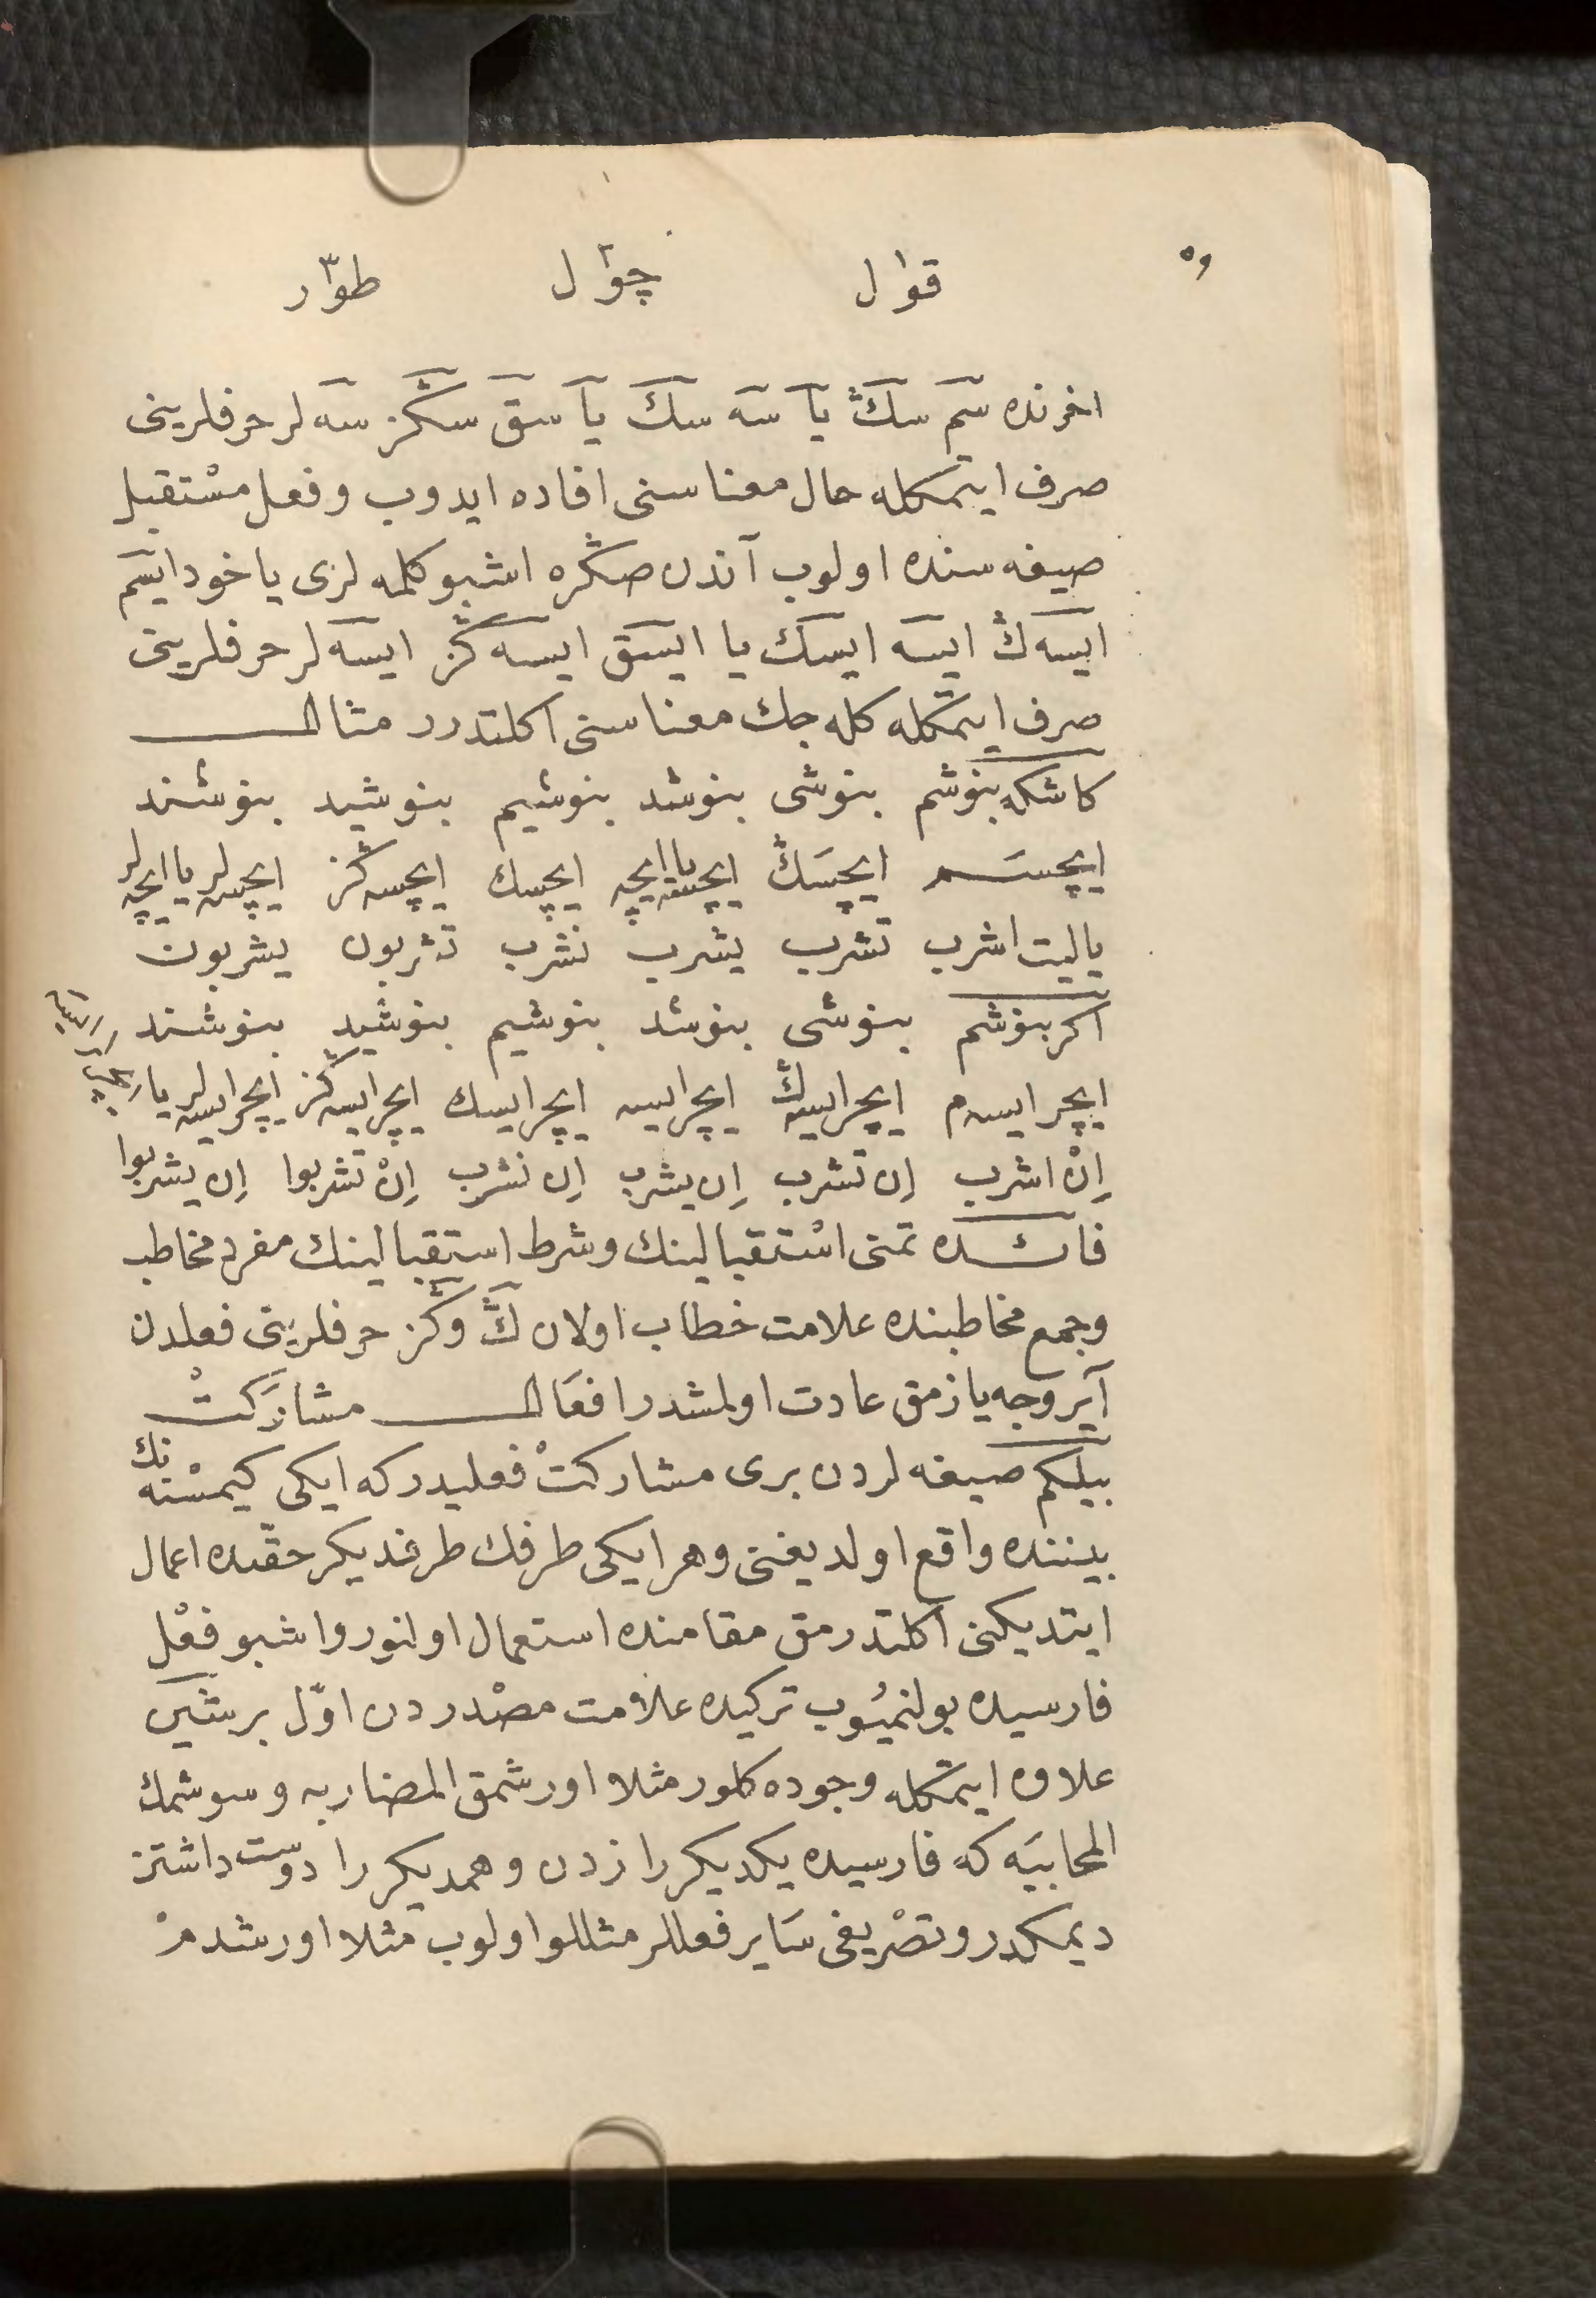 قوا ل چوا ل طوا ر
اخرنده سَم سَكْ يا سَه سَك يا سَق سَكْز سَه لر حرفلرينى
صرف ايتمكله حال معناسنى افاده ايدوب و فعل مسْتقبل
صيغه سنده اولوب آندن صكْره اشبو كلمه لرى ياخود ايسَم
ايسَه ك ايسَه ايسَك يا ايسَق ايسَه كْز ايسَه لر حرفلرينى
صرف ايتمكله كله جك معناسنى اكلتدرر مثال
كاشكه بنوشم بنوشى بنوشد بنوشيم بنوشيد بنوشند
ايچسَم ايچسَكْ ايچسَه يا ايچه ايچسك ايچسه كْز ايچسه لر يا ايچه لر
ياليت اشرب تشرب يشرب نشرب تشربون يشربون
اكر بنوشم بنوشى بنوشد بنوشيم بنوشيد بنوشند
ايچر ايسه م ايچر ايسه كْ ايچر ايسه ايچر ايسك ايچر ايسه كْز ايچر ايسه لر يا
اِنْ اشرب اِن تشرب اِن يشرب اِن نشرب اِنْ تشربوا اِن يشربوا
فائده تمنى اسْتقبالينك و شرط استقبالينك مفرد مخاطب
وجمع مخاطبنده علامت خطاب اولان كْ و كْز حرفلرينى فعلدن
آيروجه يازمق عادت اولمشدر افعَال مشارَكتْ
بيلكم صيغه لردن برى مشاركتْ فعليدر كه ايكى كيمسْنه نك
بيننده واقع اولديغنى و هر ايكى طرفك طرف ديكر حقّنده اعمال
ايتديكنى اكلتدرمق مقامنده استعمال اولنور و اشبو فعْل
فارسيده بولنميُوب تركيده علامت مصْدردن اوّل بر شَين
علاوه ايتمكله وجوده كلور مثلا اورشمق المضاربه و سوشمك
المحابيَه كه فارسيده يكديكر را زدن و همديكر را دوست داشتن
ديمكدر و تصْريفى سَاير فعللر مثللو اولوب مثلا اورشدمْ